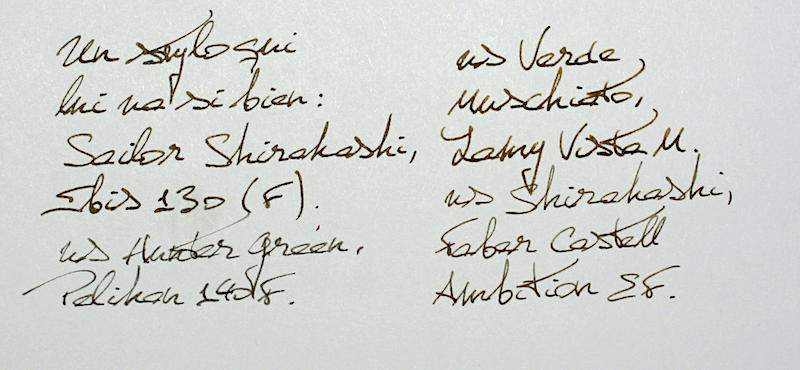 Un stylo qui
lui va si bien :
Sailor Shirakashi,
Ibis 130 (F).
vs Hunter green,
Pelikan 140 F.
vs Verde
Muschiato,
Lamy Vista M.
vs Shirakashi,
Faber Castell
Ambition EF.